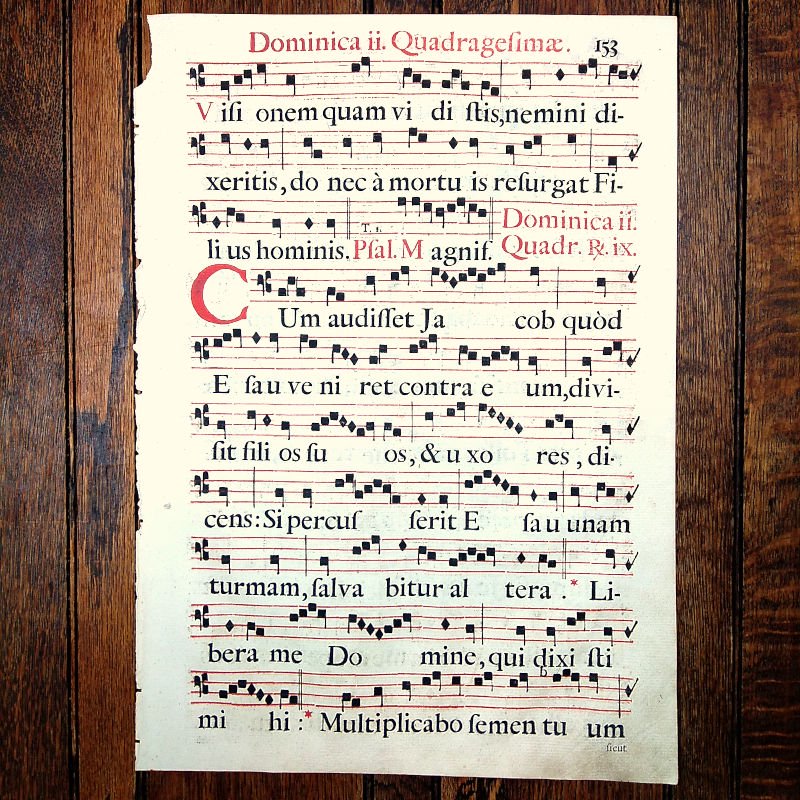 Dominica ii. Quadrageſimæ. 153
Viſi onem quam vi di ſtis, nemini di-
xeritis, do nec à mortu is reſurgat Fi-
li us hominis. Pſal. M agnif. Dominica ii.
T. 1. Quadr. ℟. ix.
CUm audiſſet Ja cob quòd
E ſau ve ni ret contra e um, divi-
ſit fili os ſu os, & u xo res, di-
cens: Si percuſ ſerit E ſau unam
turmam, ſalva bitur al tera. * Li-
bera me Do mine, qui dixi ſti
mi hi: * Multiplicabo ſemen tu um
ſicut